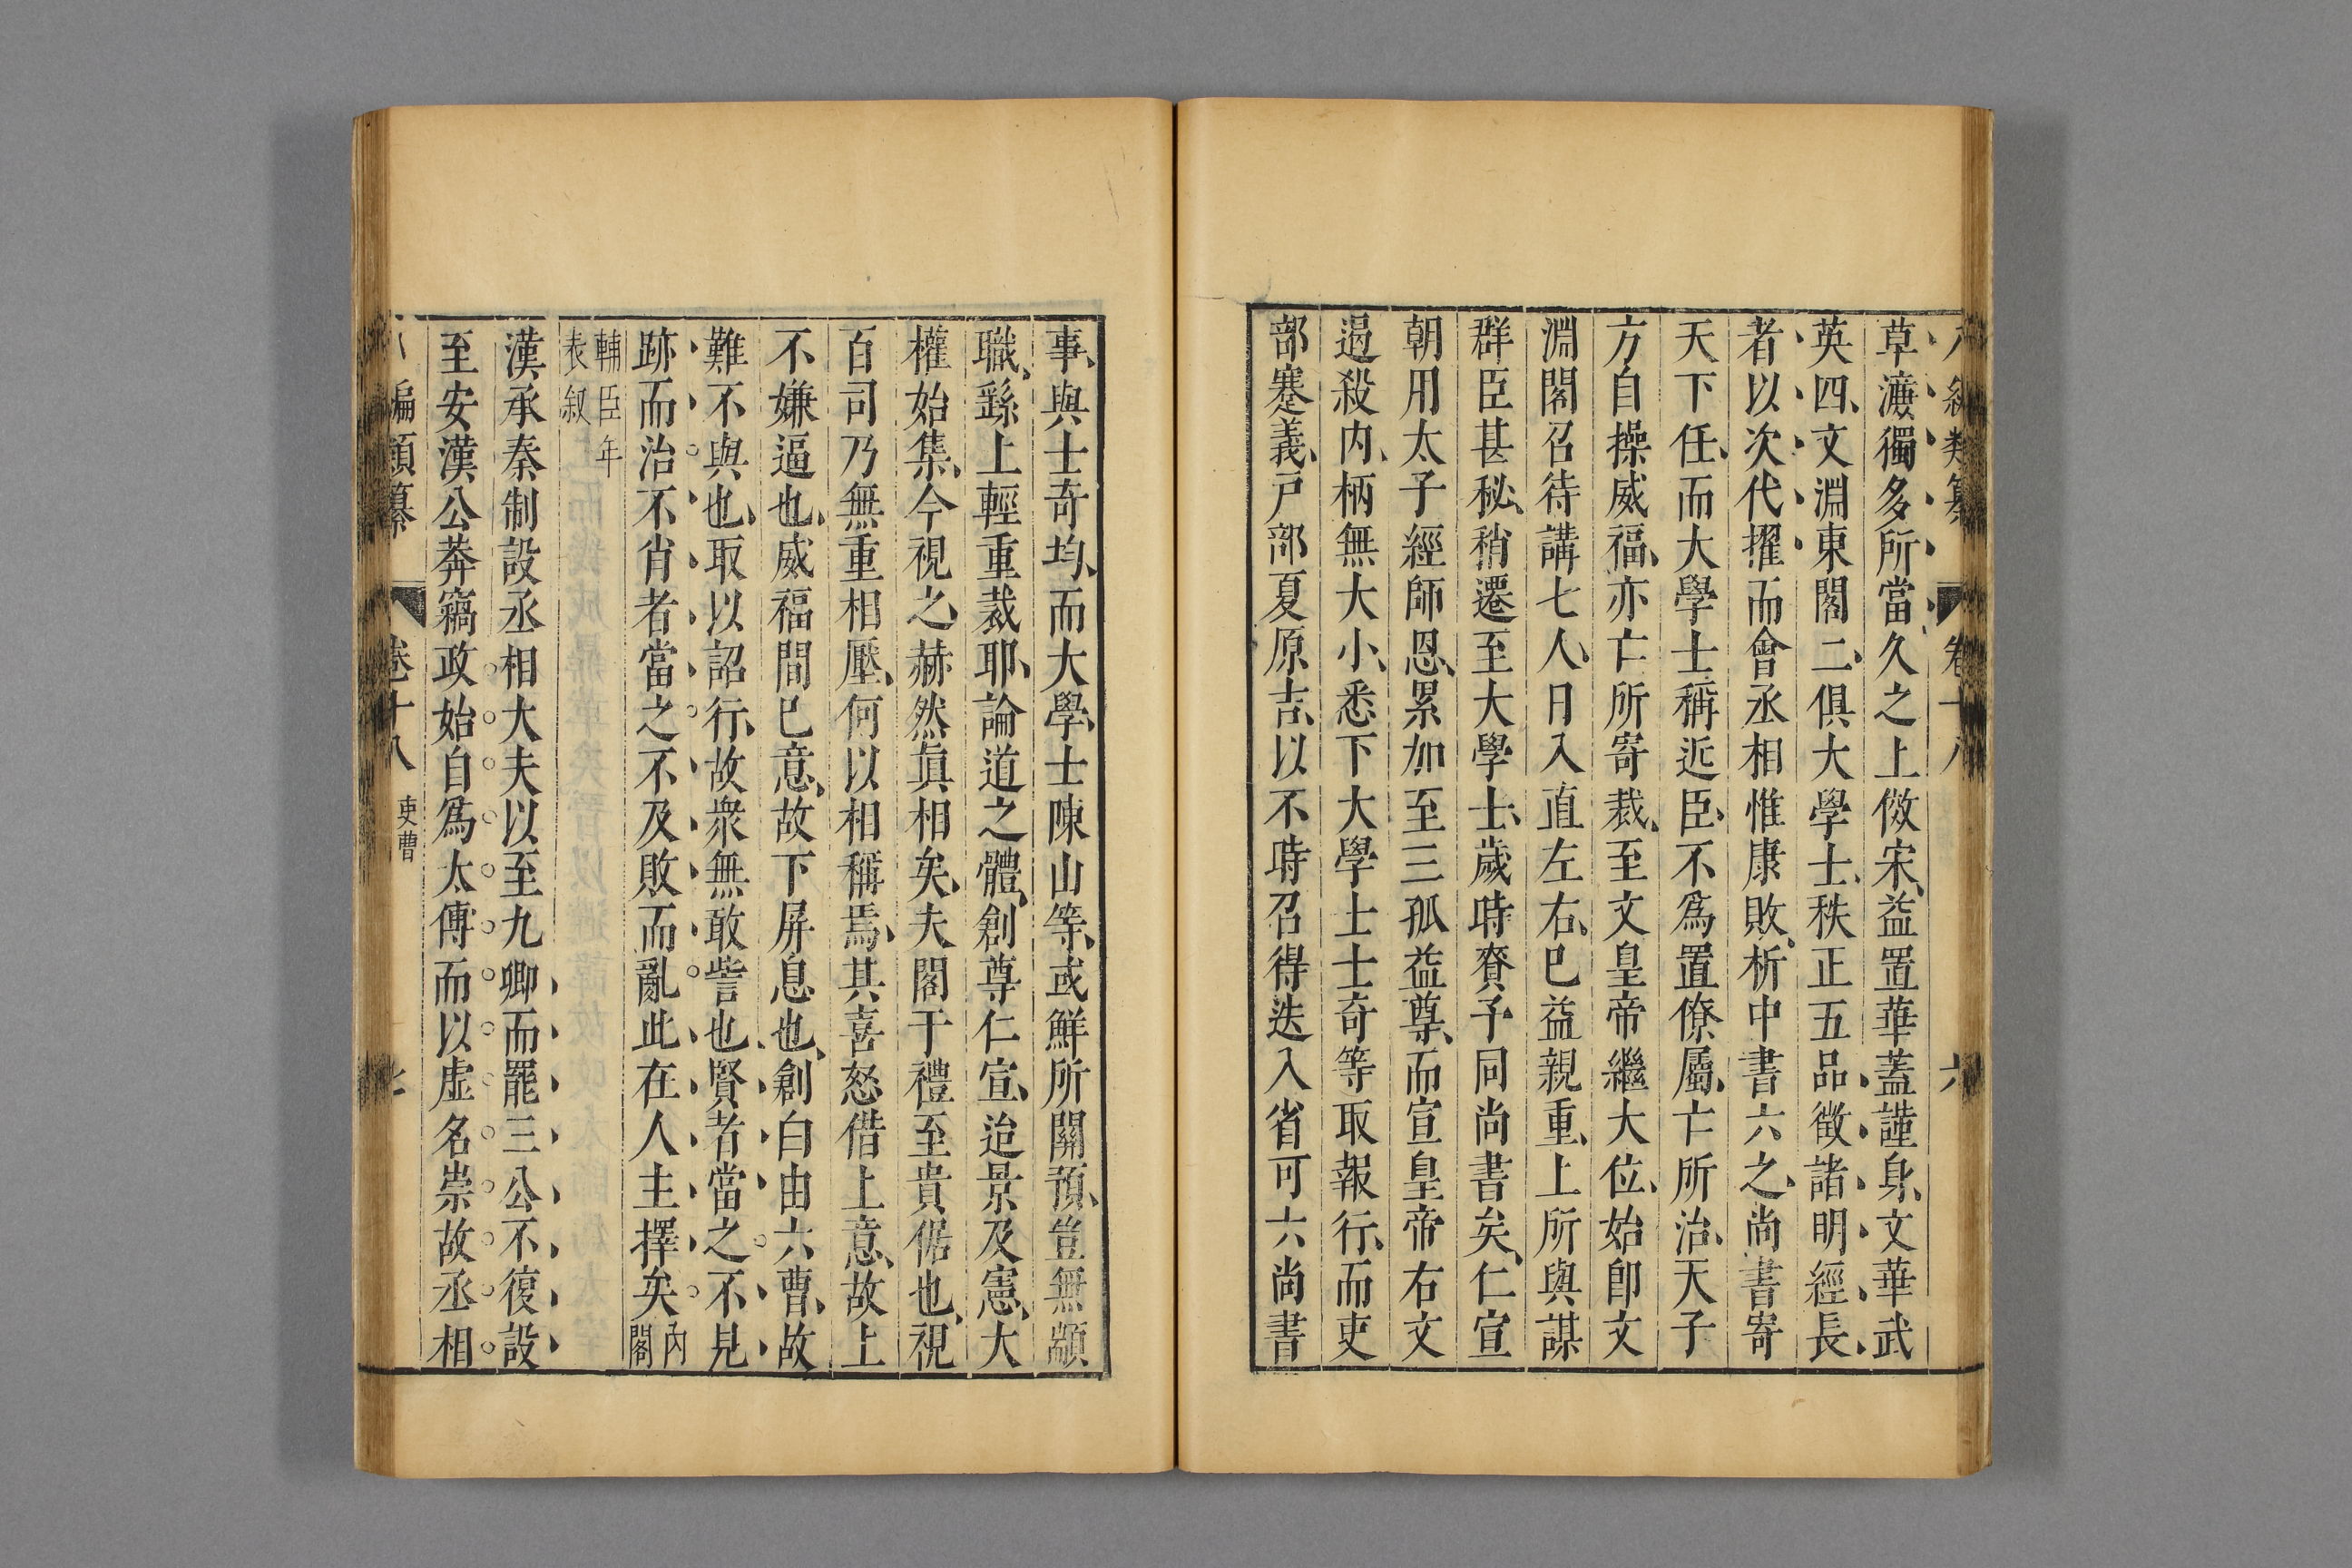 八編類纂 卷十八 六
草澳獨多所當久之上倣宋益置華蓋謹身文華武
英四文淵東閣二俱大學士秩正五品徵諸明經長
者以次代擢而會丞相惟庚敗析中書六之尚書寄
天下任而大學士稱近臣不爲置僚屬亡所治天子
方自操威福亦亡所寄裁至文皇帝繼大位始卽文
淵閣召待講七人日入直左右巳益親重上所與謀
群臣甚秘稍遷至大學士歲時賚予同尚書矣仁宣
朝用太子經師恩累加至三孤益尊而宣皇帝右文
過殺内柄無大小悉下大學士士奇等取報行而吏
部蹇義戸部夏原吉以不時召得迭入省可六尚書
事與士奇均而大學士陳山等或鮮所關預豈無顓
職繇上輕重裁耶論道之體創尊仁宣迨景及憲大
權始集今視之赫然眞相矣夫閣于禮至貴倨也視
百司乃無重相壓何以相稱焉其喜怒借上意故上
不嫌逼也威福間巳意故下屏息也創白由六曹故
難不與也取以詔行故衆無敢訾也賢者當之不見
跡而治不肖者當之不及敗而亂此在人主擇矣内閣
輔臣年表叙
漢承秦制設丞相大夫以至九卿而罷三公不復設
至安漢公莽竊政始自爲太傅而以虛名崇故丞相
編類纂 卷十八 吏曹 七